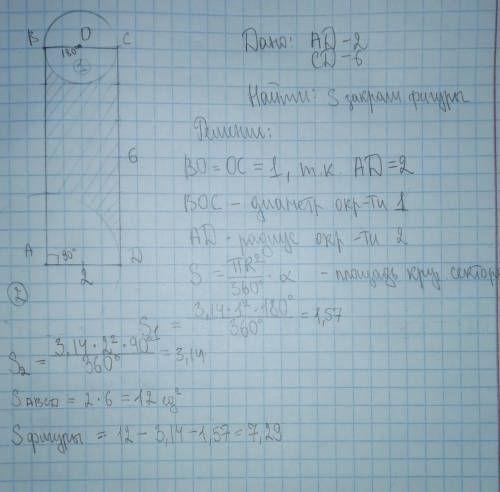 B O C
180°
1
6
A 90° D
2
2
Дано: AD - 2
CD - 6
Найти: S закраш фигуры
Решение:
BO = OC = 1, т.к. AD = 2
BOC - диаметр окр-ти 1
AD - радиус окр-ти 2
S = πR²/360° · α - площадь круг сектора
S₁ = 3,14·1²·180°/360° = 1,57
S₂ = 3,14·2²·90°/360° = 3,14
S ABCD = 2·6 = 12 ед²
S фигуры = 12 - 3,14 - 1,57 = 7,29